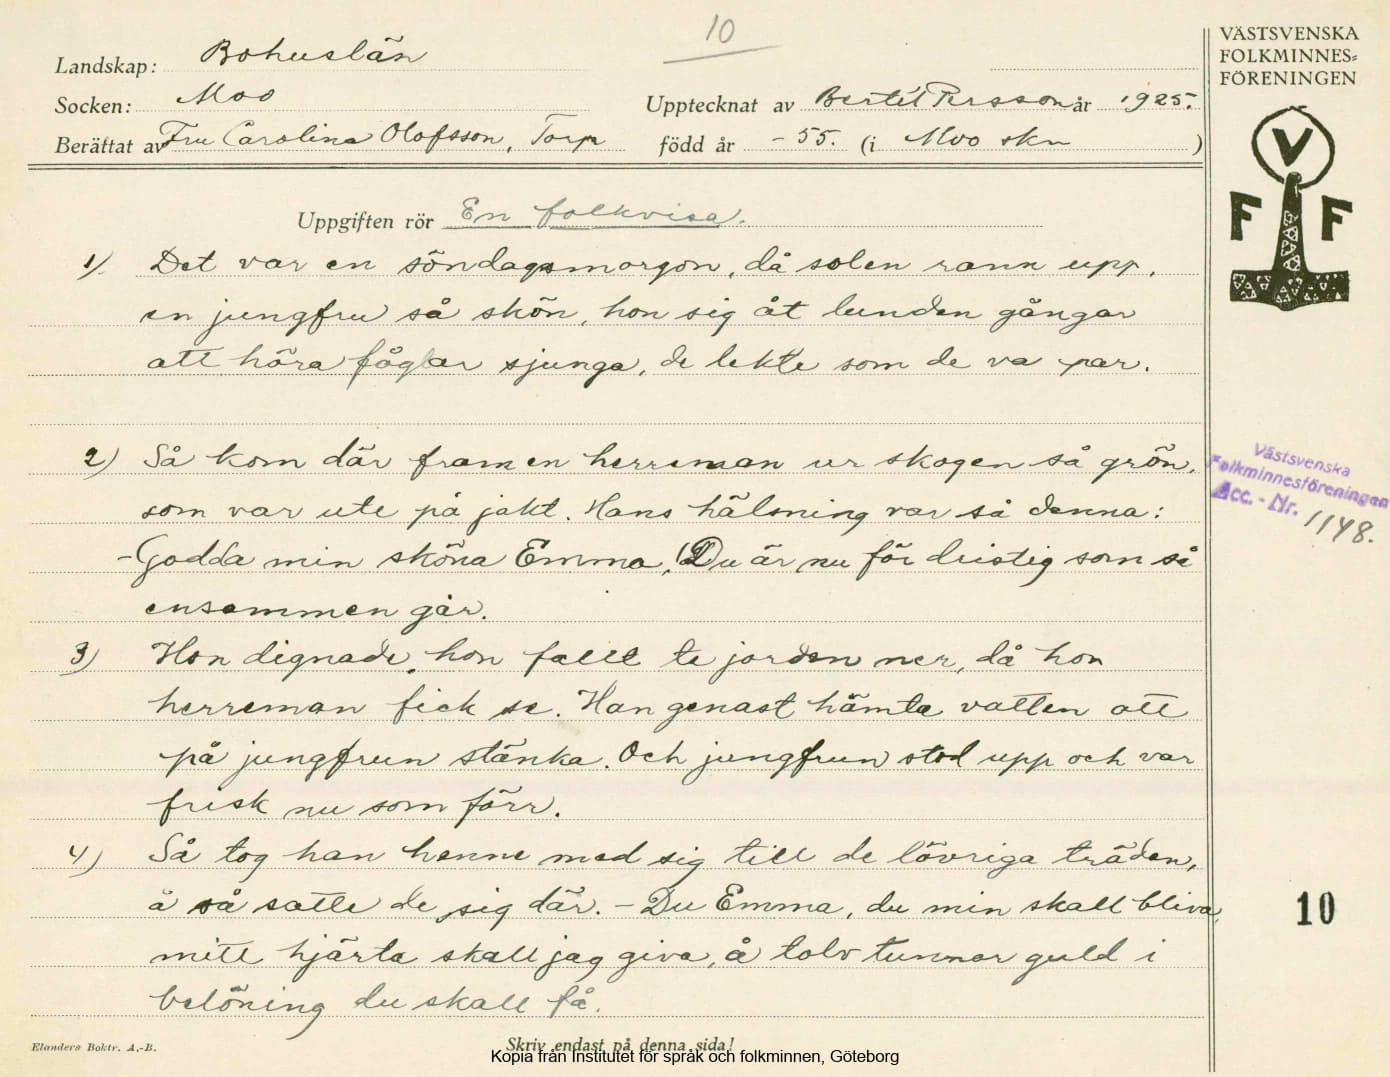 10
Landskap: Bohuslän
Socken: Moo
Upptecknat av Bertil Persson år 1925.
Berättat av Fru Carolina Olofsson, Torp
född år -55. (i Moo skn )
VÄSTSVENSKA
FOLKMINNES=
FÖRENINGEN
V
F F
Uppgiften rör En folkvisa.
1) Det var en söndagsmorgon, då solen rann upp,
en jungfru så skön, hon sig åt lunden gångar
att höra fåglar sjunga, de lekte som de va par.
2) Så kom där fram en herreman ur skogen så grön,
som var ute på jakt. Hans hälsning var så denna:
- Godda min sköna Emma, Du är nu för dristig som så
ensammen går.
3) Hon dignade, hon fallt te jorden ner, då hon
herreman fick se. Han genast hämta vatten att
på jungfrun stänka. Och jungfrun stod upp och var
frisk nu som förr.
4) Så tog han henne med sig till de lövriga träden,
å så satte de sig där. - Du Emma, du min skall bliva,
mitt hjärta skall jag giva, å tolv tunnor guld i
belöning du skall få.
Västsvenska
Folkminnesföreningen
Acc. - Nr. 1148.
10
Elanders Boktr. A.-B.
Skriv endast på denna sida!
Kopia från Institutet för språk och folkminnen, Göteborg